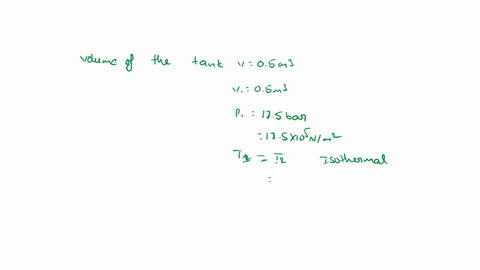 volume of the tank V = 0.5m3
V1 = 0.5m3
P1 = 17.5 bar
= 17.5x10^5 N/m2
T1 = T2 Isothermal
=